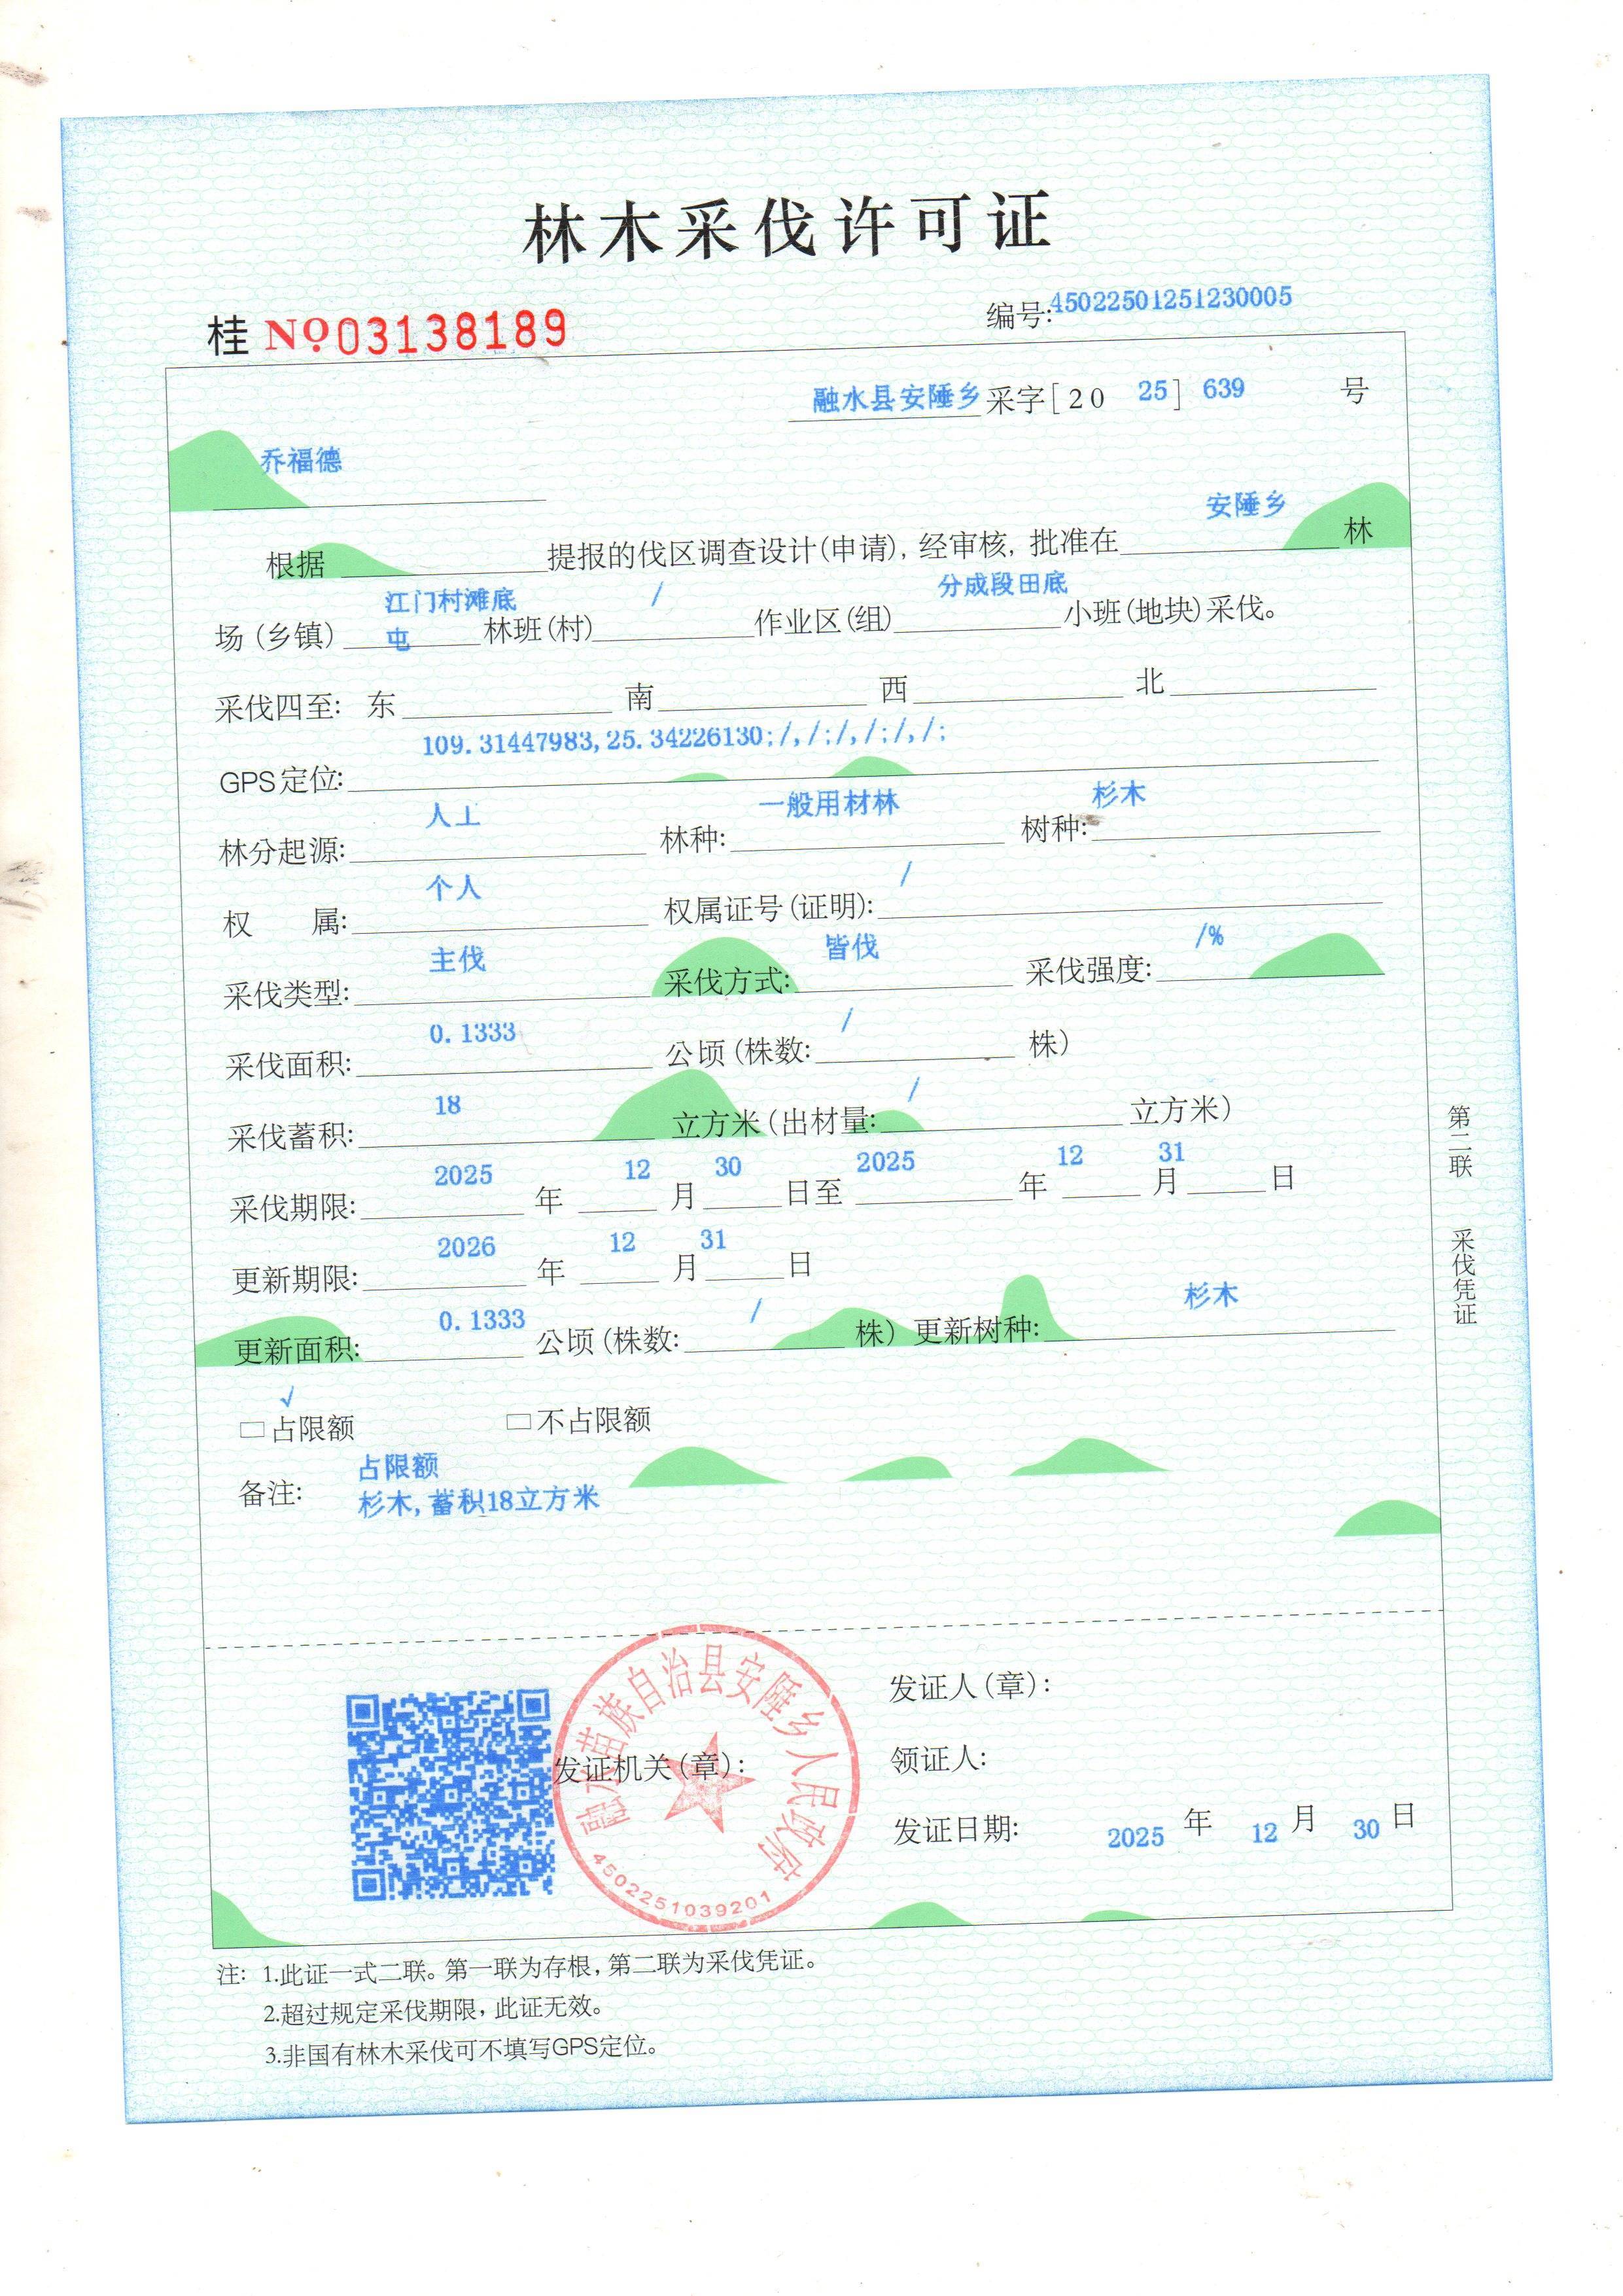 林木采伐许可证
桂 NO 03138189 编号:45022501251230005
融水县安陲乡 采字[2025] 639 号
乔福德
根据 提报的伐区调查设计(申请),经审核,批准在 安陲乡 林
场(乡镇) 江门村滩底屯 林班(村) / 作业区(组) 分成段田底 小班(地块)采伐。
采伐四至: 东 南 西 北
GPS定位: 109.31447983,25.34226130;/,/;/,/;/,/;
林分起源: 人工 林种: 一般用材林 树种: 杉木
权 属: 个人 权属证号(证明): /
采伐类型: 主伐 采伐方式: 皆伐 采伐强度: /%
采伐面积: 0.1333 公顷(株数: / 株)
采伐蓄积: 18 立方米(出材量: / 立方米)
采伐期限: 2025 年 12 月 30 日至 2025 年 12 月 31 日
更新期限: 2026 年 12 月 31 日
更新面积: 0.1333 公顷(株数: / 株) 更新树种: 杉木
√
□占限额 □不占限额
备注: 占限额
杉木,蓄积18立方米
第二联 采伐凭证
融水苗族自治县安陲乡人民政府
4502251039201
发证机关(章):
发证人(章):
领证人:
发证日期: 2025 年 12 月 30 日
注: 1.此证一式二联。第一联为存根,第二联为采伐凭证。
2.超过规定采伐期限,此证无效。
3.非国有林木采伐可不填写GPS定位。